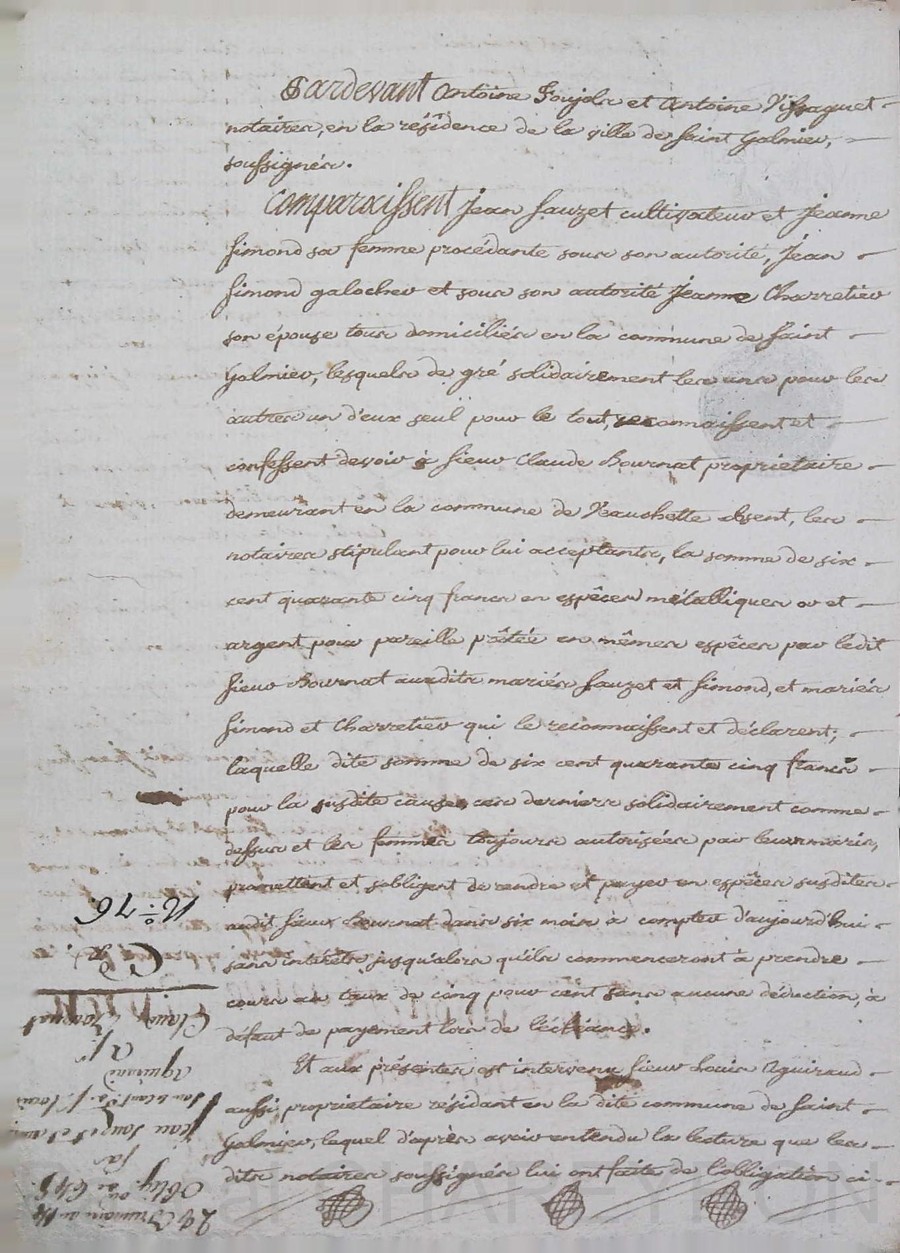 Pardevant Antoine Foujols et Antoine Vissaguet
notaires, en la résidence de la ville de Saint Galmier,
soussignés.
Comparaissent Jean Sauzet cultivateur et Jeanne
Simond sa femme procédante sous son autorité, Jean
Simond galocher et sous son autorité Jeanne Charretier
son épouse tous domiciliés en la commune de Saint
Galmier, lesquels de gré solidairement les uns pour les
autres un d'eux seul pour le tout, reconnaissent et
confessent devoir à Sieur Claude Bournat propriétaire
demeurant en la commune de Veauchette absent, les
notaires stipulant pour lui acceptants, la somme de six
cent quarante cinq francs en espèces métalliques or et
argent pour pareille prêtée en mêmes espèces par ledit
Sieur Bournat auxdits mariés Sauzet et Simond, et mariés
Simond et Charretier qui le reconnaissent et déclarent;
laquelle dite somme de six cent quarante cinq francs
pour la susdite cause, ces derniers solidairement comme
dessus et les femmes toujours autorisées par leurs maris,
promettent et s'obligent de rendre et payer en espèces susdites
audit Sieur Bournat dans six mois à compter d'aujourd'hui
sans intérêts jusqu'alors qu'ils commenceront à prendre
cours au taux de cinq pour cent sans aucune déduction, à
défaut de payement lors de l'échéance.
Et aux présentes est intervenu Sieur Louis Aguiraud
aussi propriétaire résidant en la dite commune de Saint
Galmier, lequel d'après avoir entendu la lecture que les
dits notaires soussignés lui ont faite de l'obligation ci-
29 Brumaire an 14
Oblig. on de 645
par
Jean Sauzet et
Louis
Aguiraud
a Sr
Claude Bournat
CHAREYRON